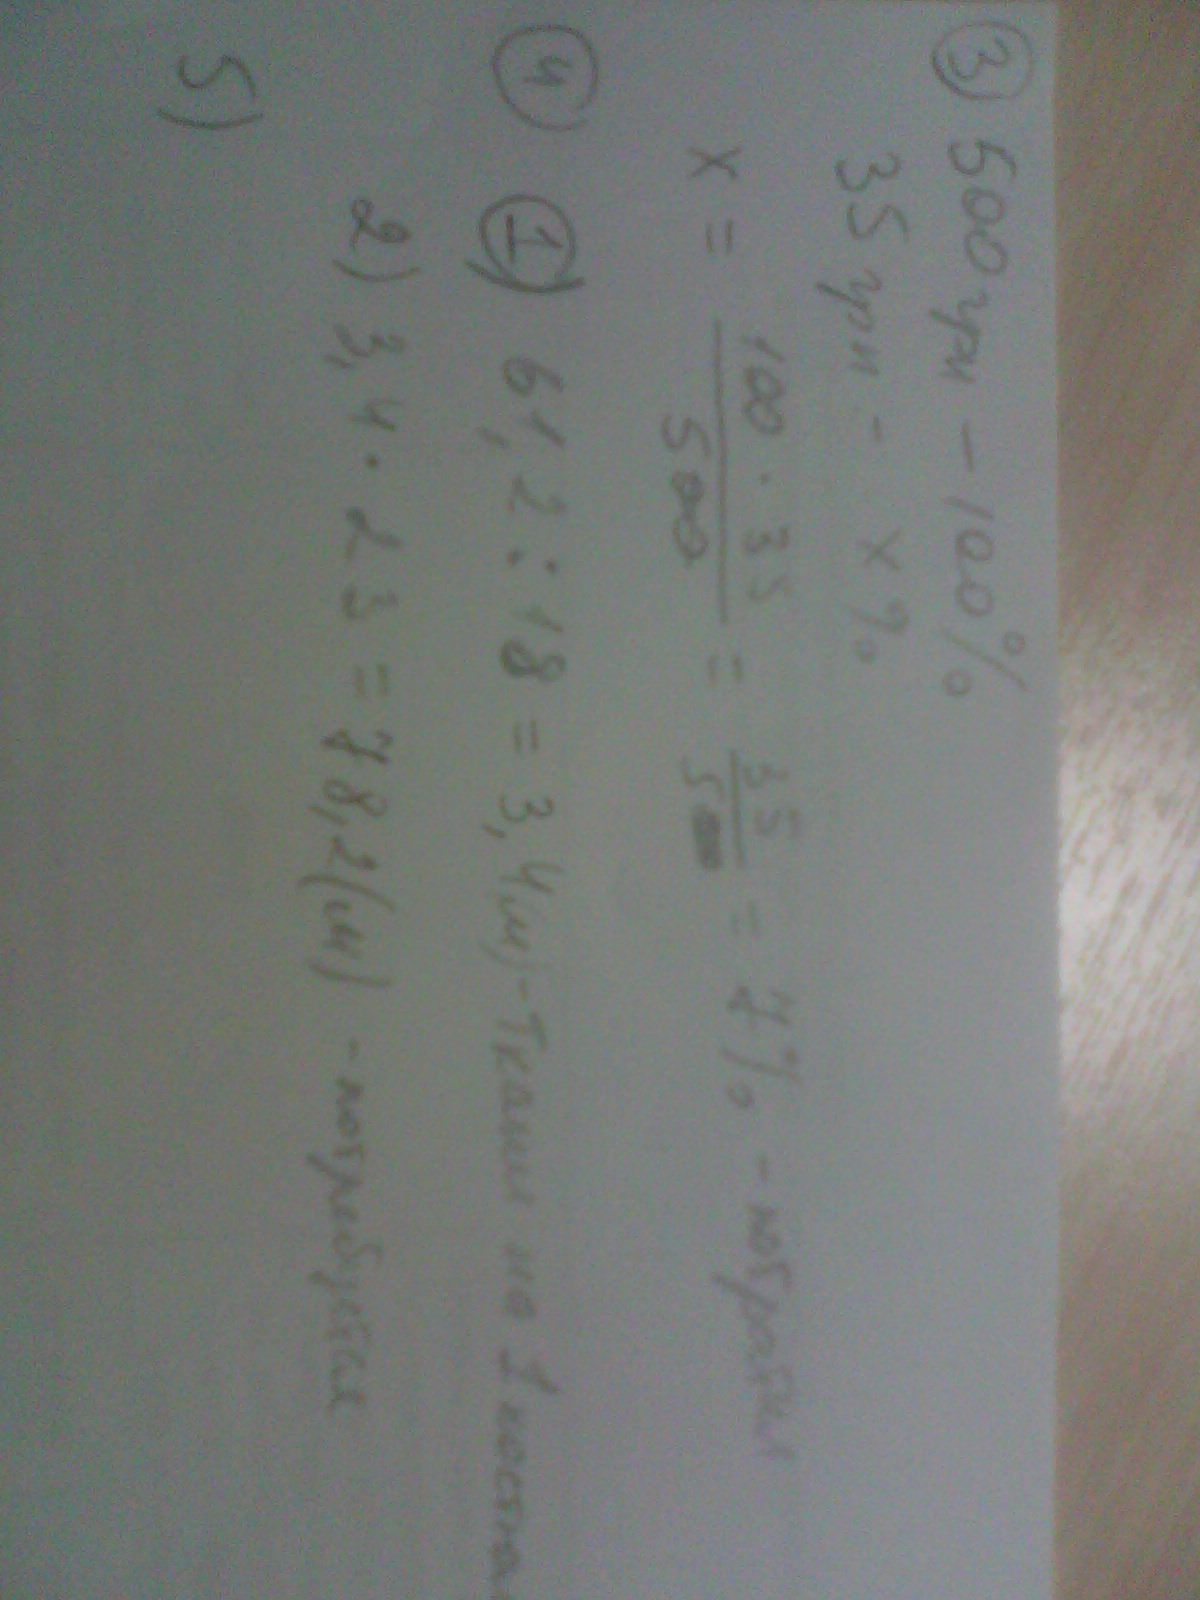 ③ 500 грн – 100%
35 грн – x%
x = 100 · 35 / 500 = 35 / 5 = 7% – потратил
④ ①) 61,2 : 18 = 3,4(м) – ткани на 1 костюм
2) 3,4 · 23 = 78,2(м) – потребуется
5)